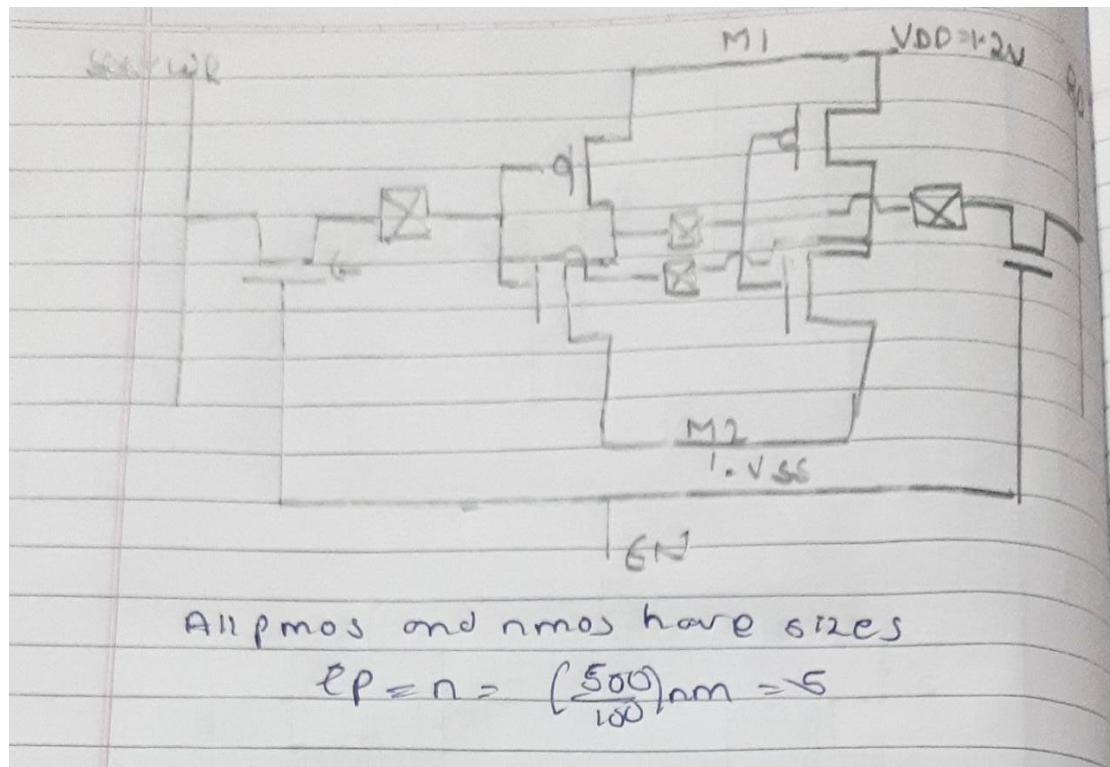 M1
VDD=1.2V
M2
1.VSS
EN
All pmos and nmos have sizes
lp=n= (500/100)nm = 5